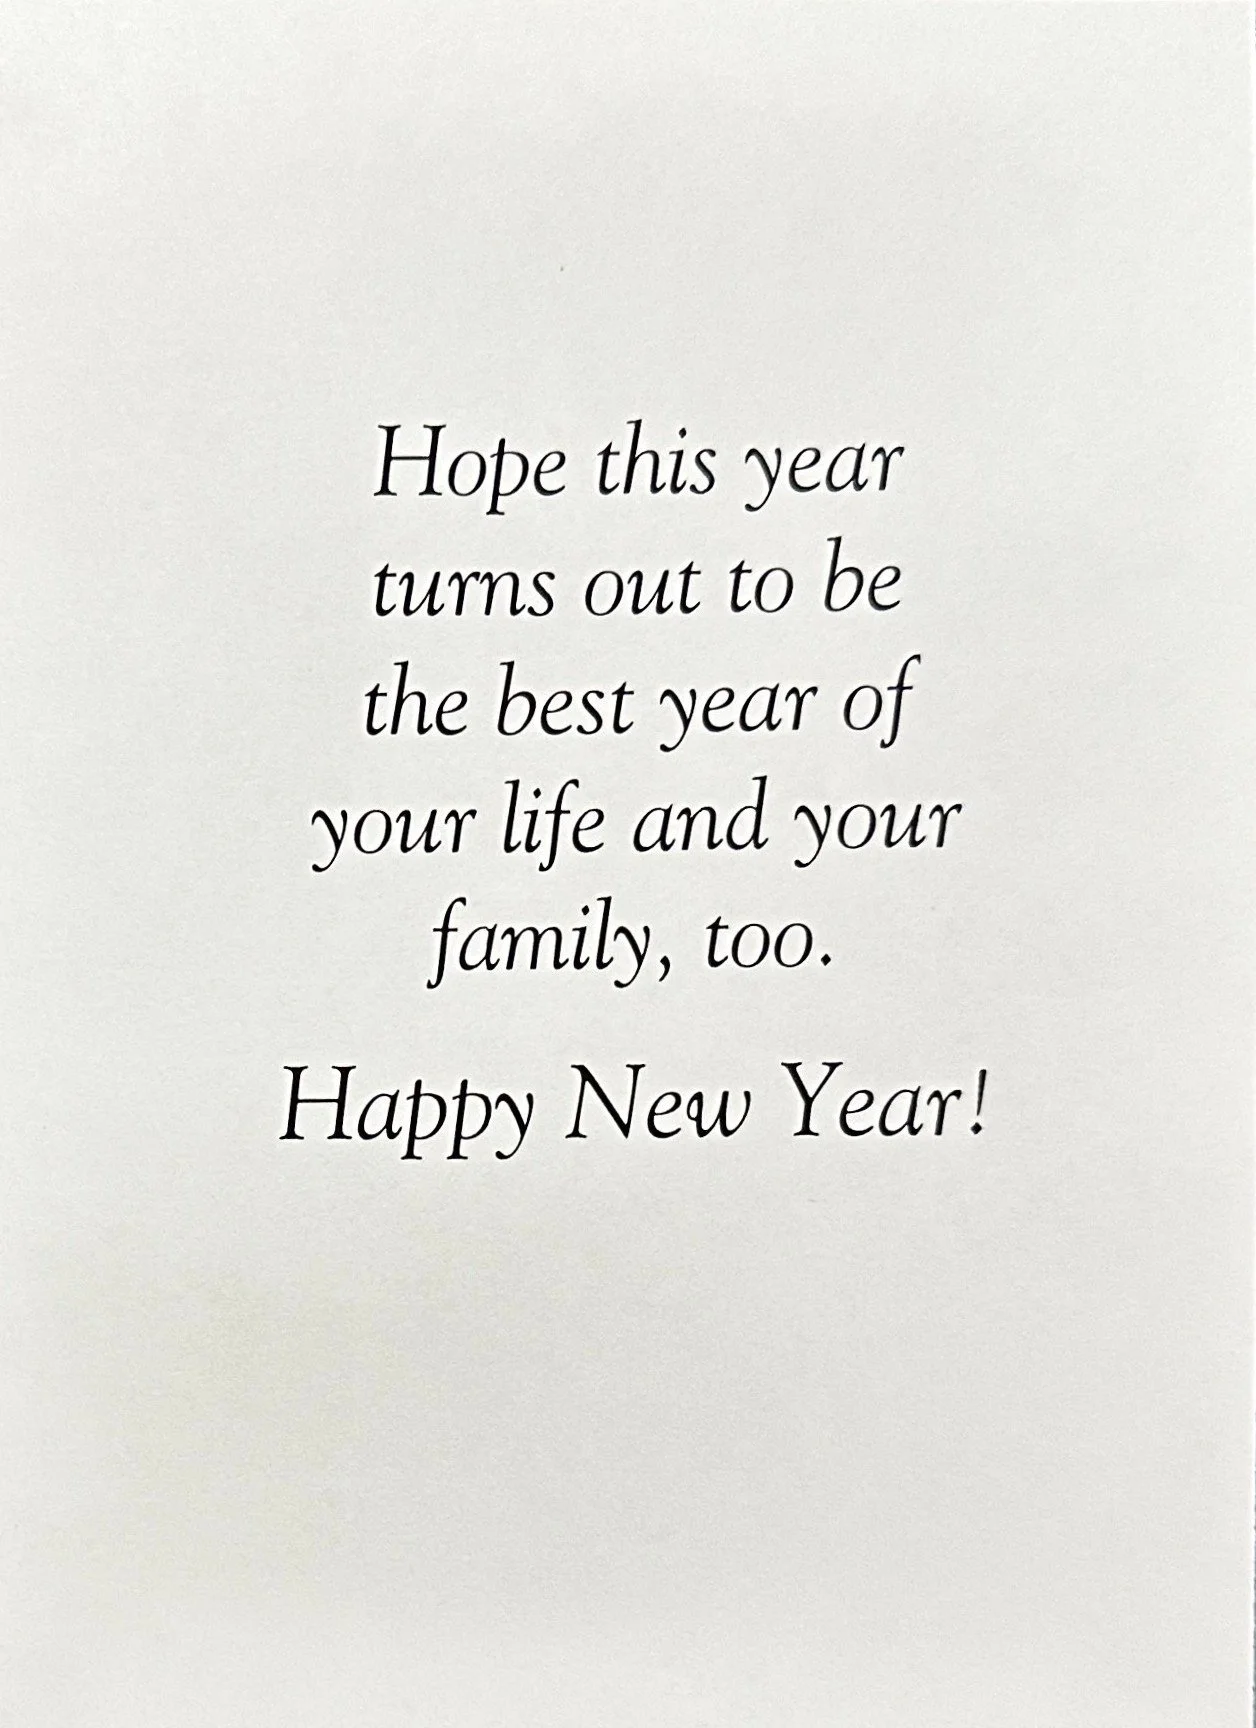 Hope this year
turns out to be
the best year of
your life and your
family, too.
Happy New Year!